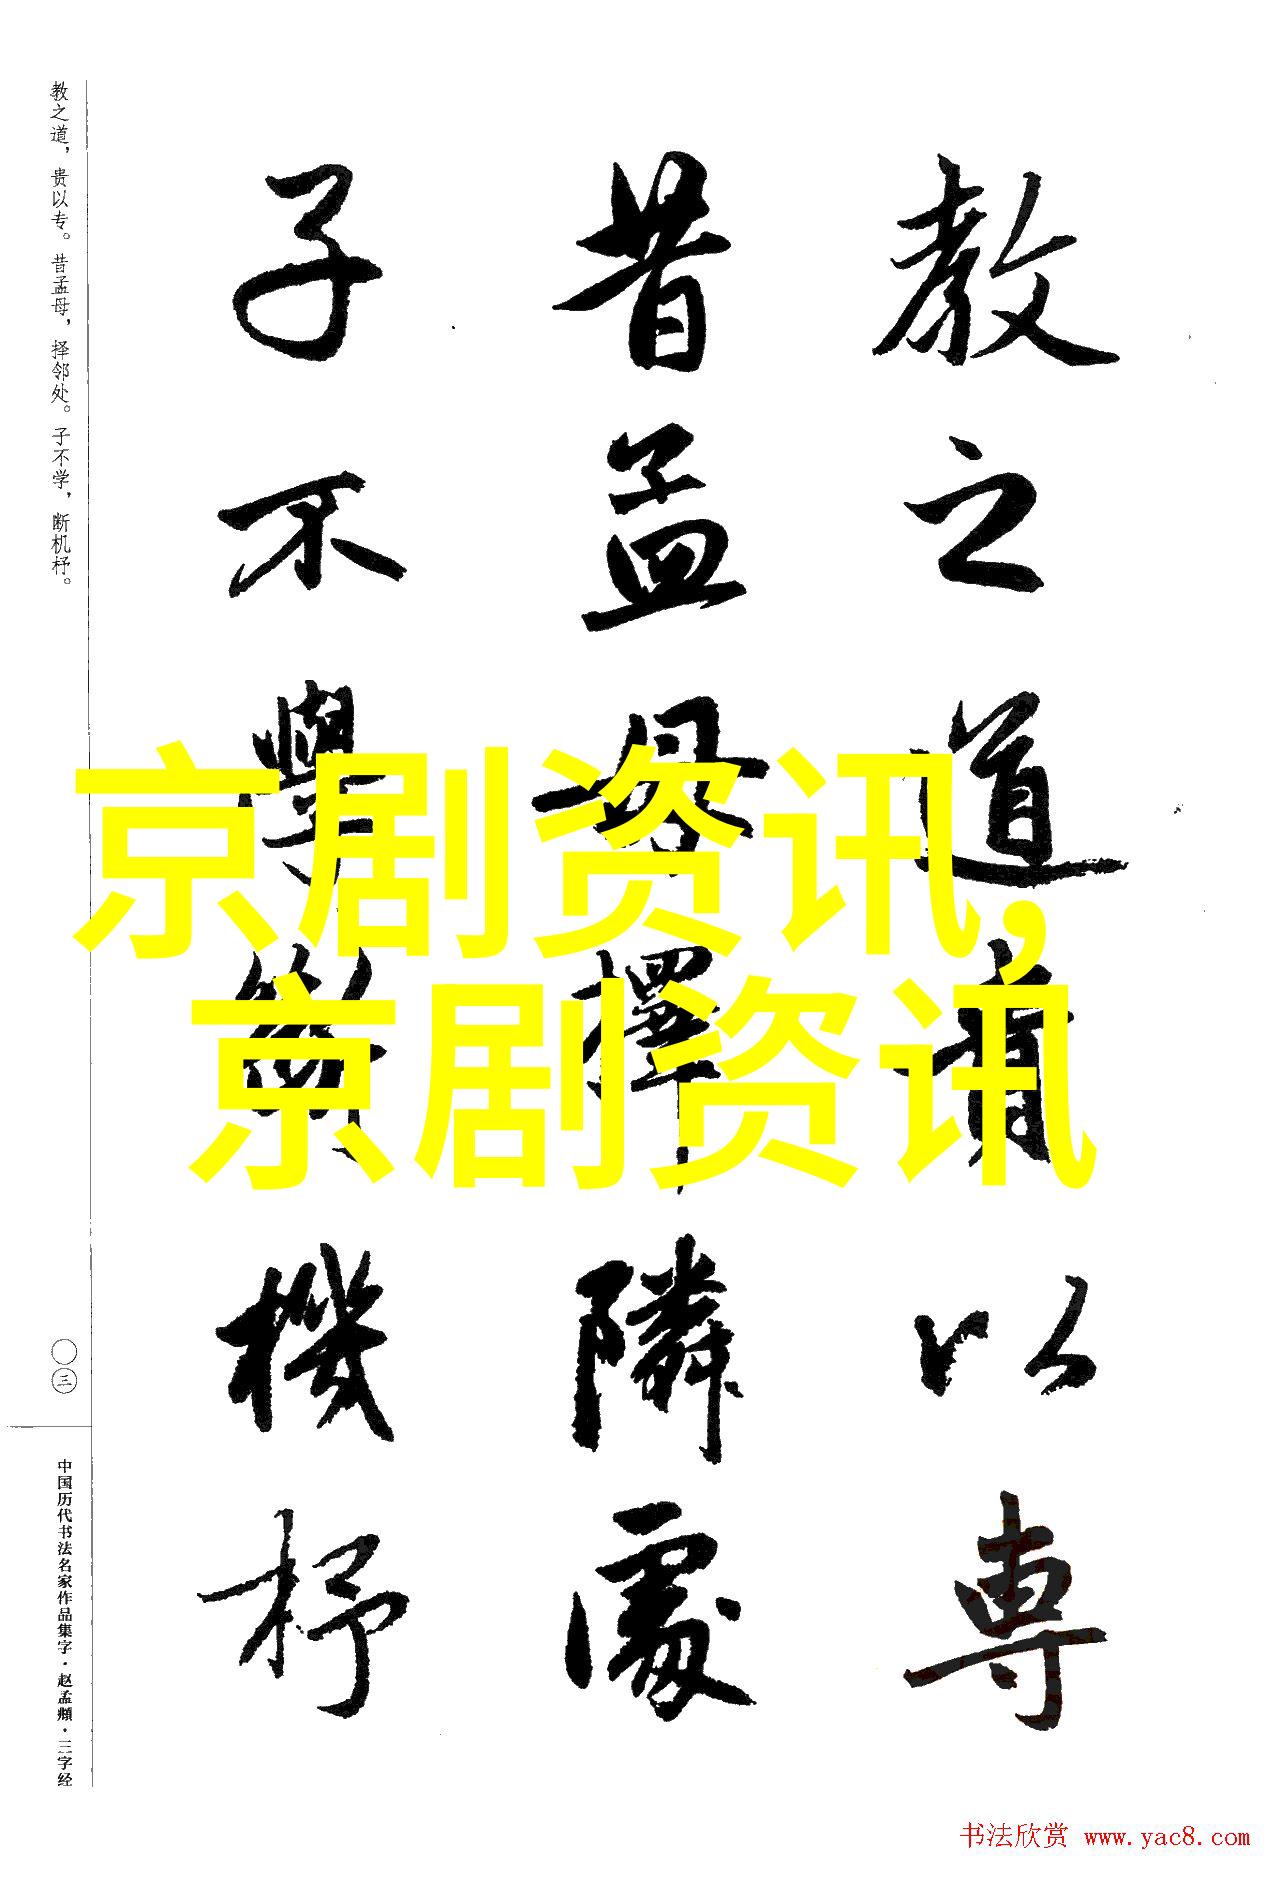 教之道貴以專
昔孟母擇隣處
子不學斷機杼
教之道，贵以专。昔孟母，择邻处。子不学，断机杼。
〇三
中国历代书法名家作品集字·赵孟頫·三字经
京剧资讯,
京剧资讯
书法欣赏 www.yac8.com